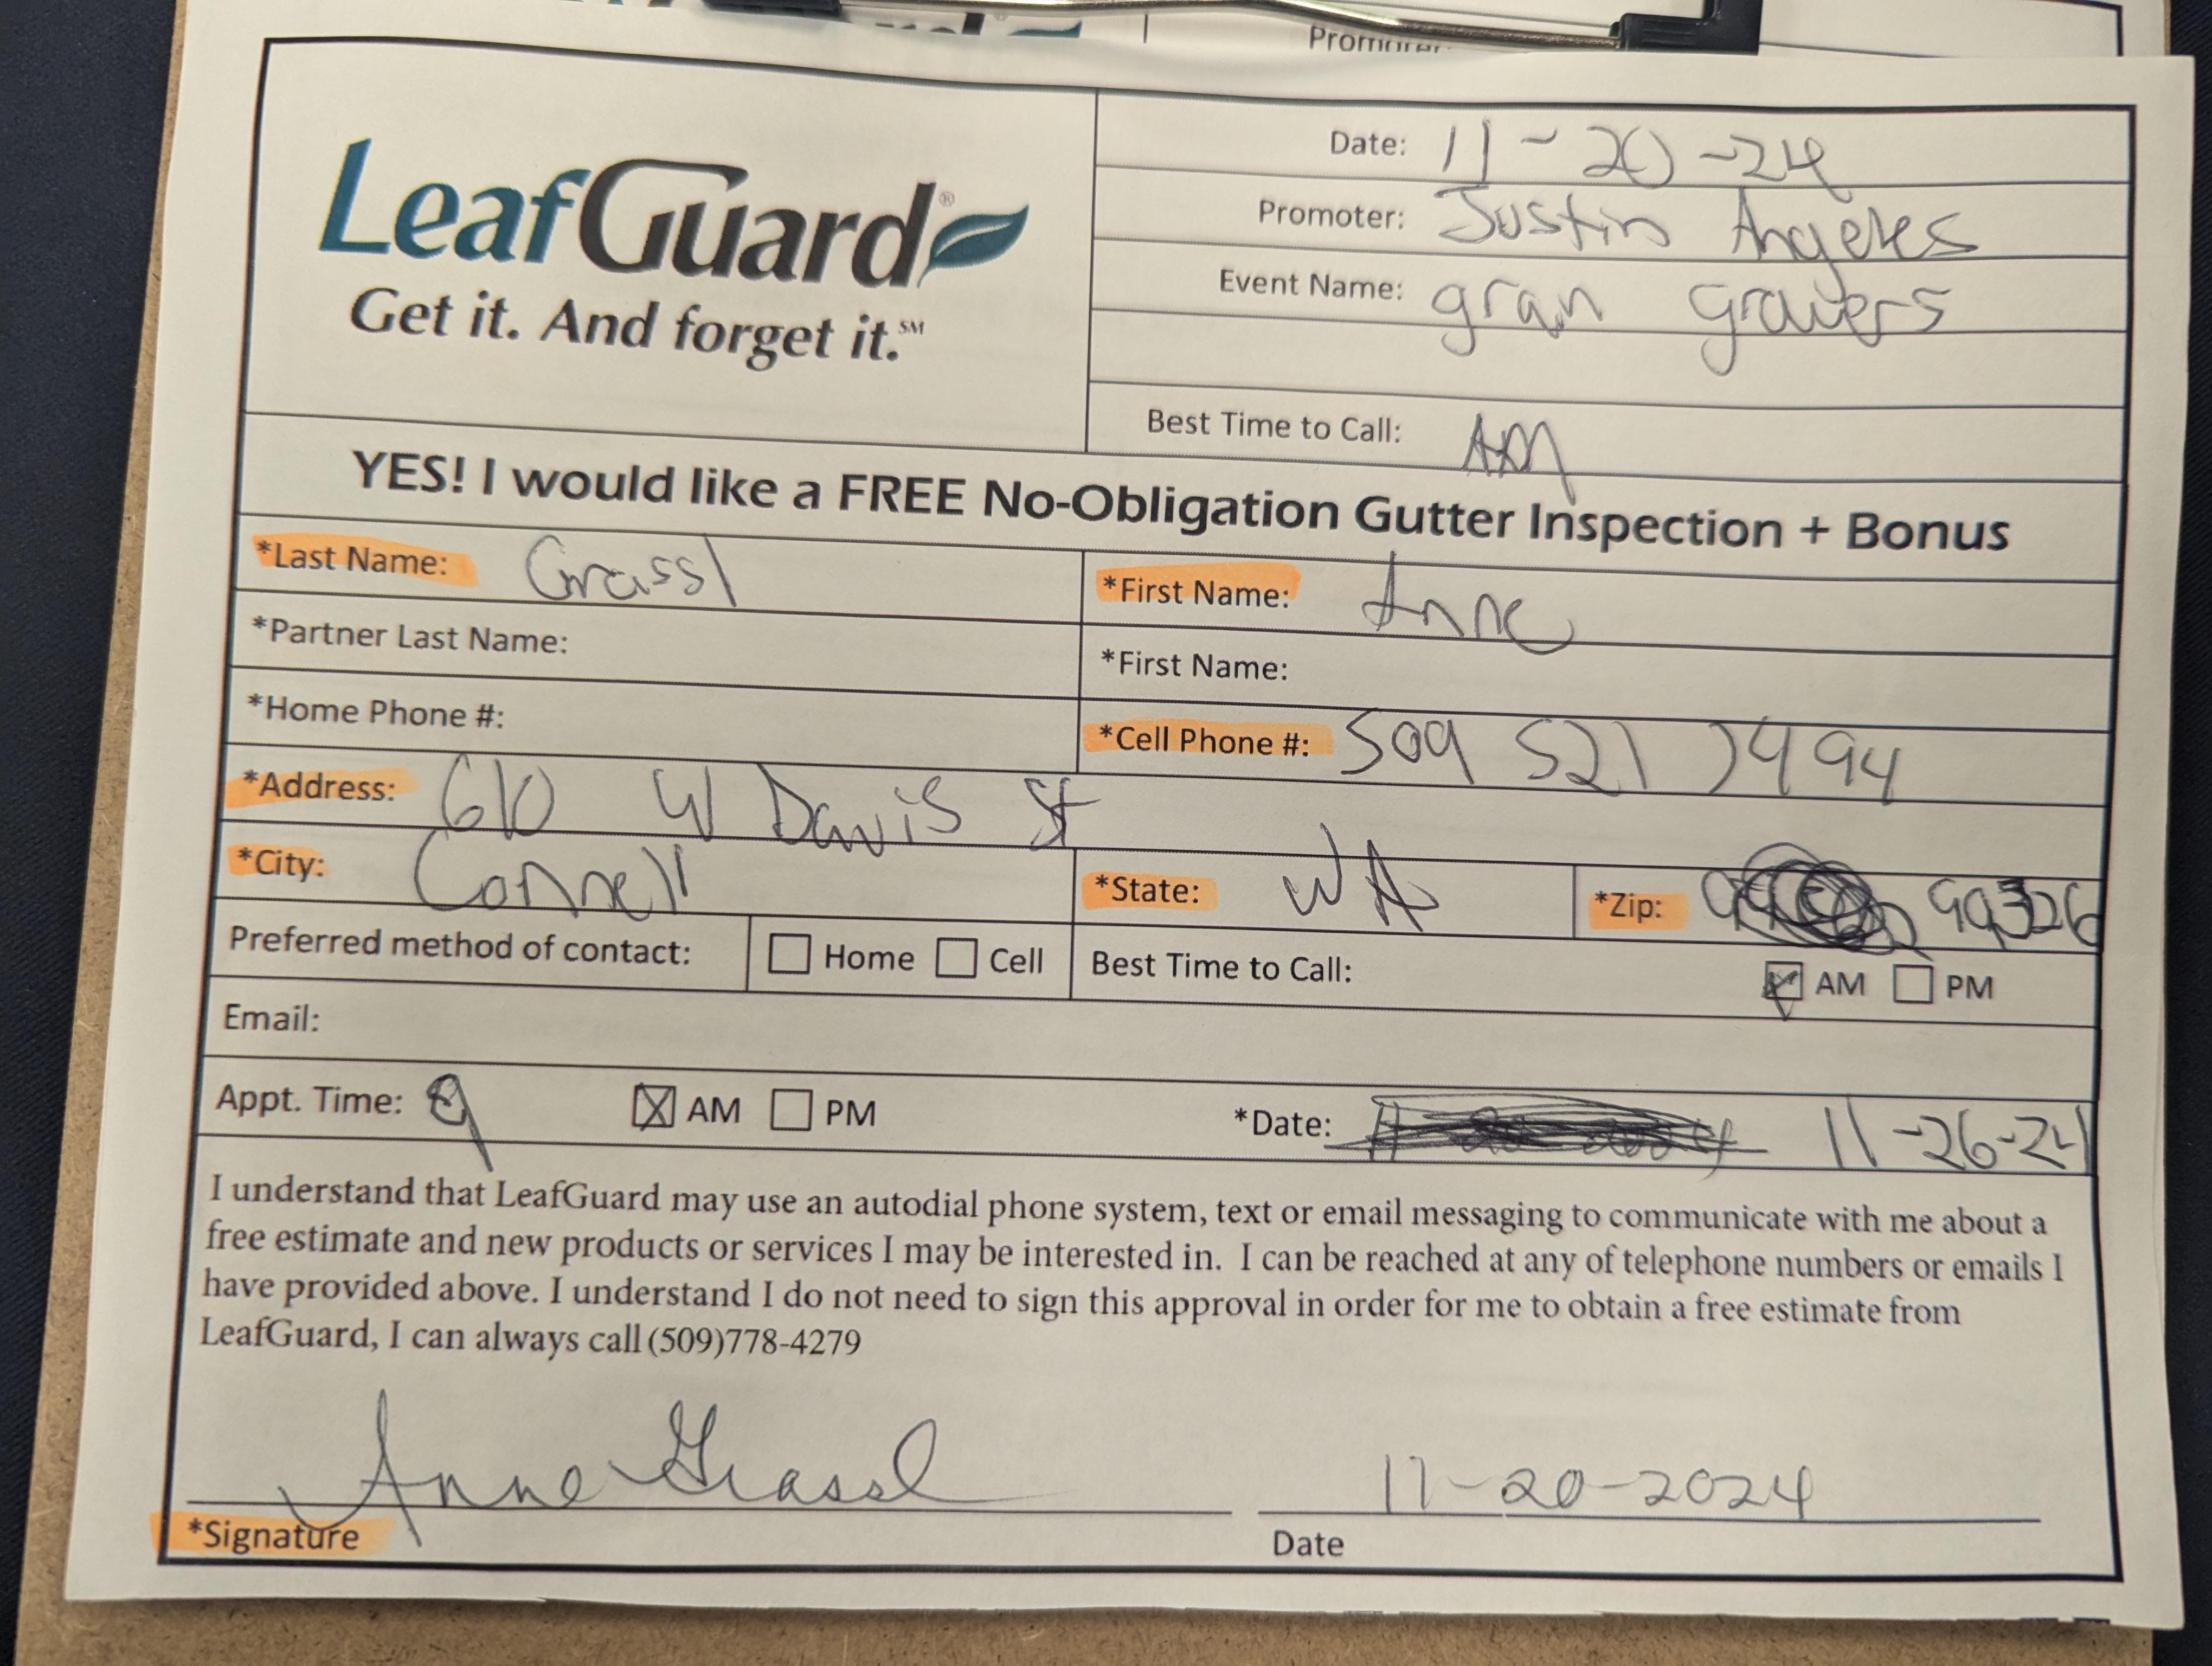 Promoter:
LeafGuard®
Get it. And forget it.℠
Date: 11-20-24
Promoter: Justin Angeles
Event Name: gran growers
Best Time to Call: AM
YES! I would like a FREE No-Obligation Gutter Inspection + Bonus
*Last Name: Grassl *First Name: Anne
*Partner Last Name: *First Name:
*Home Phone #: *Cell Phone #: 509 521 7494
*Address: 610 W Davis St
*City: Connell *State: WA *Zip: 99326
Preferred method of contact: Home Cell Best Time to Call: AM PM
Email:
Appt. Time: 9 AM PM *Date: 11-26-24
I understand that LeafGuard may use an autodial phone system, text or email messaging to communicate with me about a
free estimate and new products or services I may be interested in. I can be reached at any of telephone numbers or emails I
have provided above. I understand I do not need to sign this approval in order for me to obtain a free estimate from
LeafGuard, I can always call (509)778-4279
Anne Grassl 11-20-2024
*Signature Date